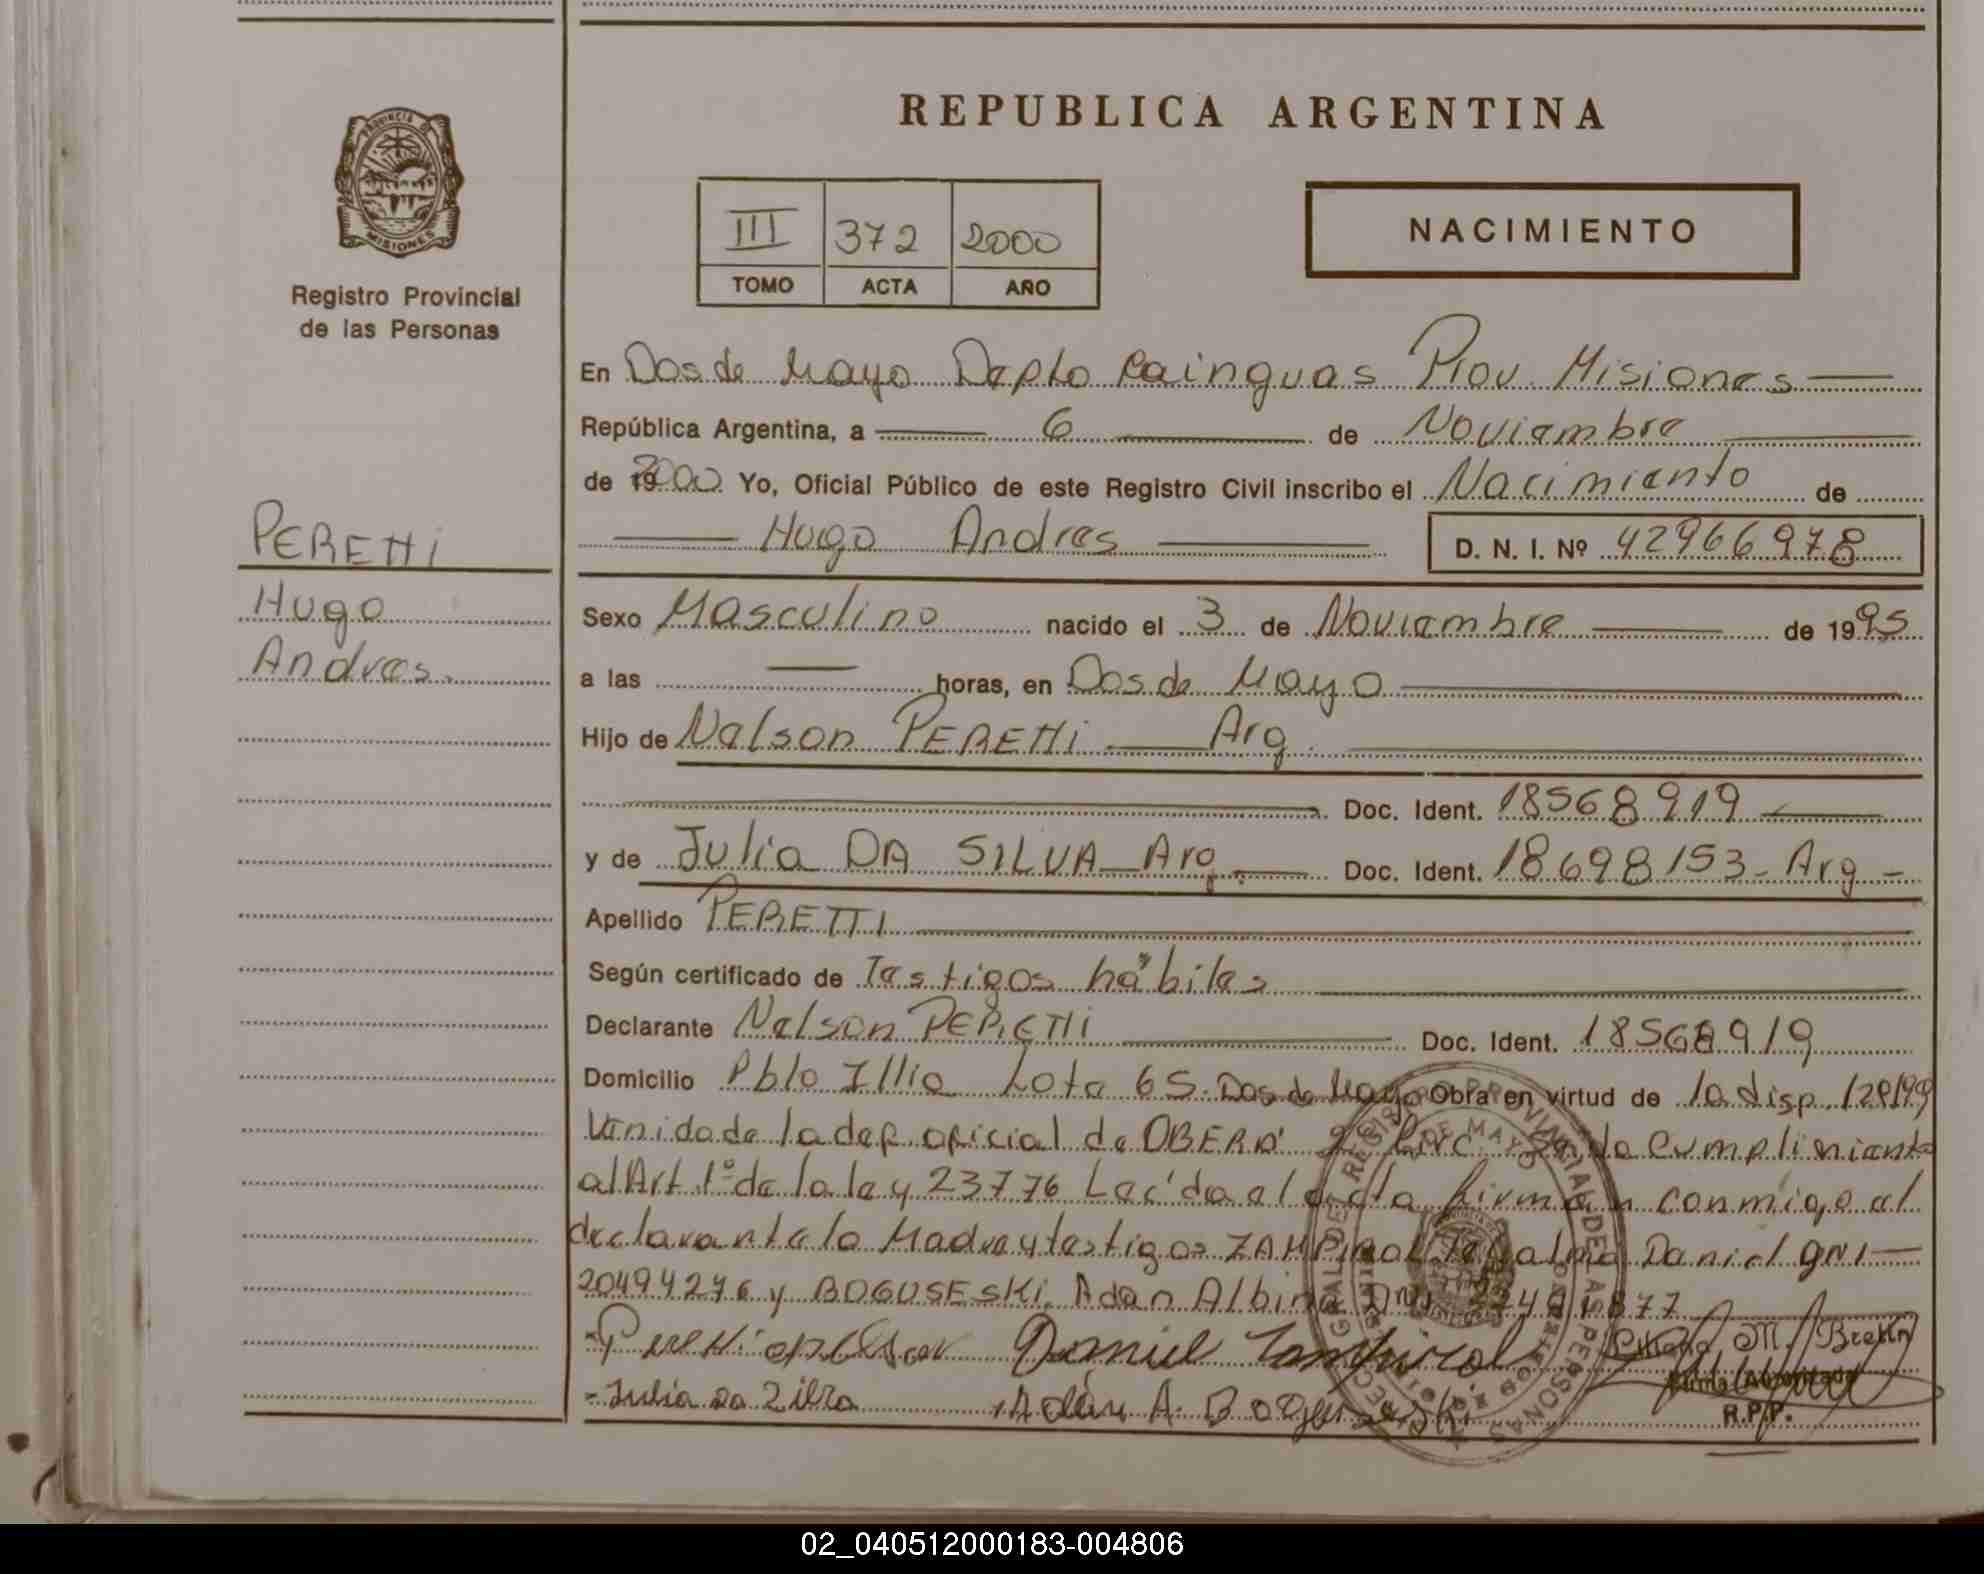 REPUBLICA ARGENTINA
PROVINCIA DE
MISIONES
Registro Provincial
de las Personas
III 372 2000
TOMO ACTA AÑO
NACIMIENTO
En Dos de Mayo Depto Cainguas Prov. Misiones
República Argentina, a 6 de Noviembre
de 2000 Yo, Oficial Público de este Registro Civil inscribo el Nacimiento de
Hugo Andres D. N. I. Nº 42966978
PERETTi
Hugo
Andres.
Sexo Masculino nacido el 3 de Noviembre de 1995
a las horas, en Dos de Mayo
Hijo de Nelson PERETTi Arg.
Doc. Ident. 18568919
y de Julia DA SILVA Arg. Doc. Ident. 18698153 - Arg -
Apellido PERETTI
Según certificado de Testigos hábiles
Declarante Nelson PERETTi Doc. Ident. 18568919
Domicilio Pblo Illia Lote 65 Dos de Mayo Obra en virtud de la disp. 128/99
Venida de la dep. oficial de OBERA' 2º Circ. dando Cumplimiento
al Art. 1º de la ley 23776 Leída el acta firman conmigo el
declarante la Madre y testigos Daniel DNI
20494276 y BOGUSESKi Adan Albino DNI
Daniel
Julia da Zilva Adán A.
Firma Autorizada
R.P.P.
02_040512000183-004806